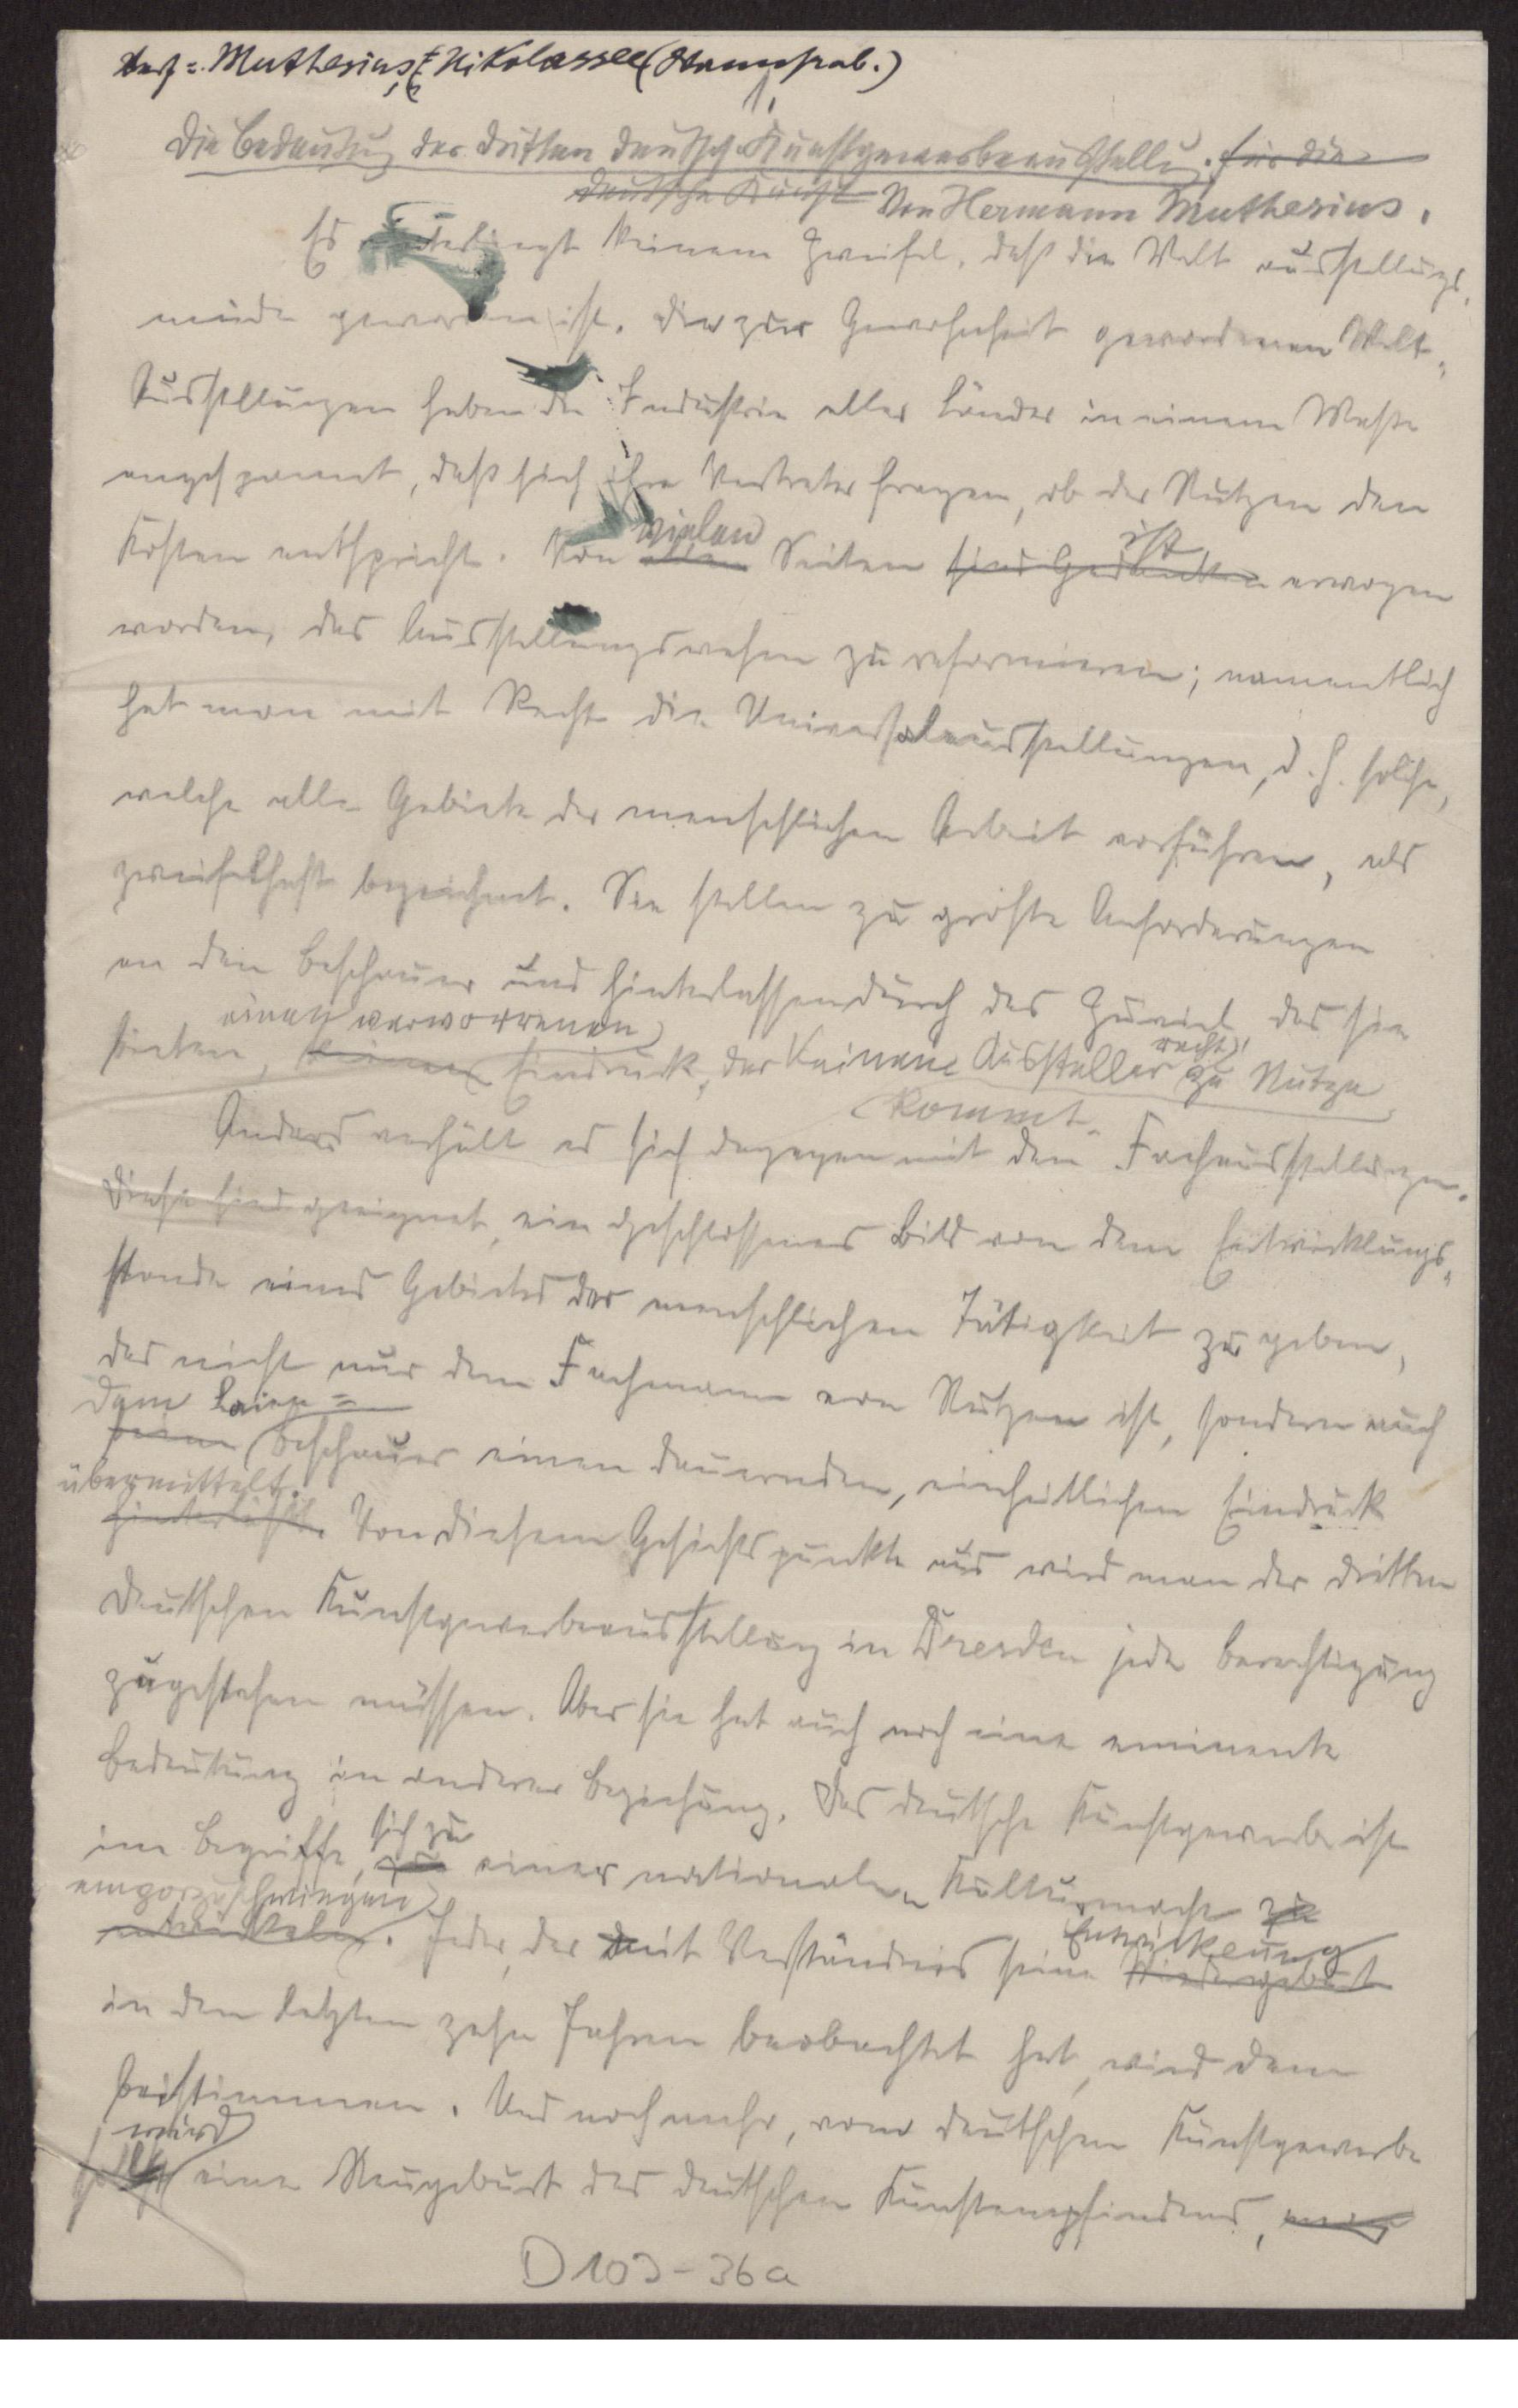 Verf: Muthesius, Nikolassee (Wannseeb.)
Die Bedeutung der dritten deutsch. Kunstgewerbeausstellg. für die
deutsche Kunst Von Hermann Muthesius.
Es unterliegt keinem Zweifel, daß die Welt ausstellungs-
müde geworden ist. Die zur Gewohnheit gewordenen Welt-
Ausstellungen haben die Industrie aller Länder in einem Maße
angespannt, daß sich ihre Vertreter fragen, ob der Nutzen den
vielen ist
Kosten entspricht. Von allen Seiten sind Gedanken erwogen
worden, das Ausstellungswesen zu reformieren; namentlich
hat man mit Recht die Universalausstellungen, d. h. solche,
welche alle Gebiete der menschlichen Arbeit vorführen, als
zweifelhaft bezeichnet. Sie stellen zu große Anforderungen
an den Beschauer und hinterlassen durch das Zuviel, das sie
einen verworrenen recht
bieten, keinen Eindruck, der keinem Aussteller zu Nutze
kommt.
Anders verhält es sich dagegen mit den Fachausstellungen.
Diese sind geeignet, ein geschlossenes Bild von dem Entwicklungs-
stande eines Gebietes der menschlichen Tätigkeit zu geben,
das nicht nur dem Fachmann von Nutzen ist, sondern auch
dem Laien-
beim Beschauer einen dauernden, einheitlichen Eindruck
übermittelt.
hinterläßt. Von diesem Gesichtspunkte aus wird man der dritten
deutschen Kunstgewerbeausstellung in Dresden jede Berechtigung
zugestehen müssen. Aber sie hat auch noch eine eminente
Bedeutung in anderer Beziehung. Das deutsche Kunstgewerbe ist
sich zu
im Begriffe, zu einer nationalen Kulturmacht zu
emporzuschwingen
entwickeln. Jeder, der mit Verständnis seine Wiedergeburt
Entwickelung
in den letzten zehn Jahren beobachtet hat, wird dem
beistimmen. Und noch mehr, vom deutschen Kunstgewerbe
wird
eine Neugeburt des deutschen Kunstempfindens,
D103-36a